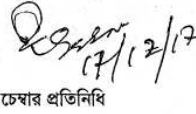 17/12/17
চেম্বার প্রতিনিধি